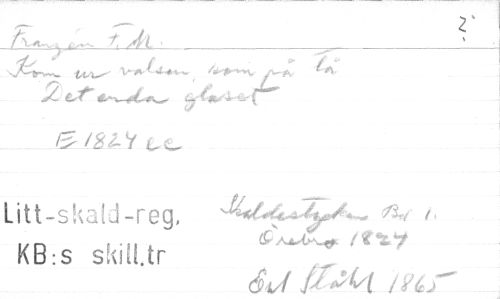 Franzén F. M.
Kom ur valsen, som på tå
Det enda glaset
E 1824 cc
Litt-skald-reg.
KB:s skill.tr
Skaldestycken Bd 1.
Örebro 1824
Enl Ståhl 1865